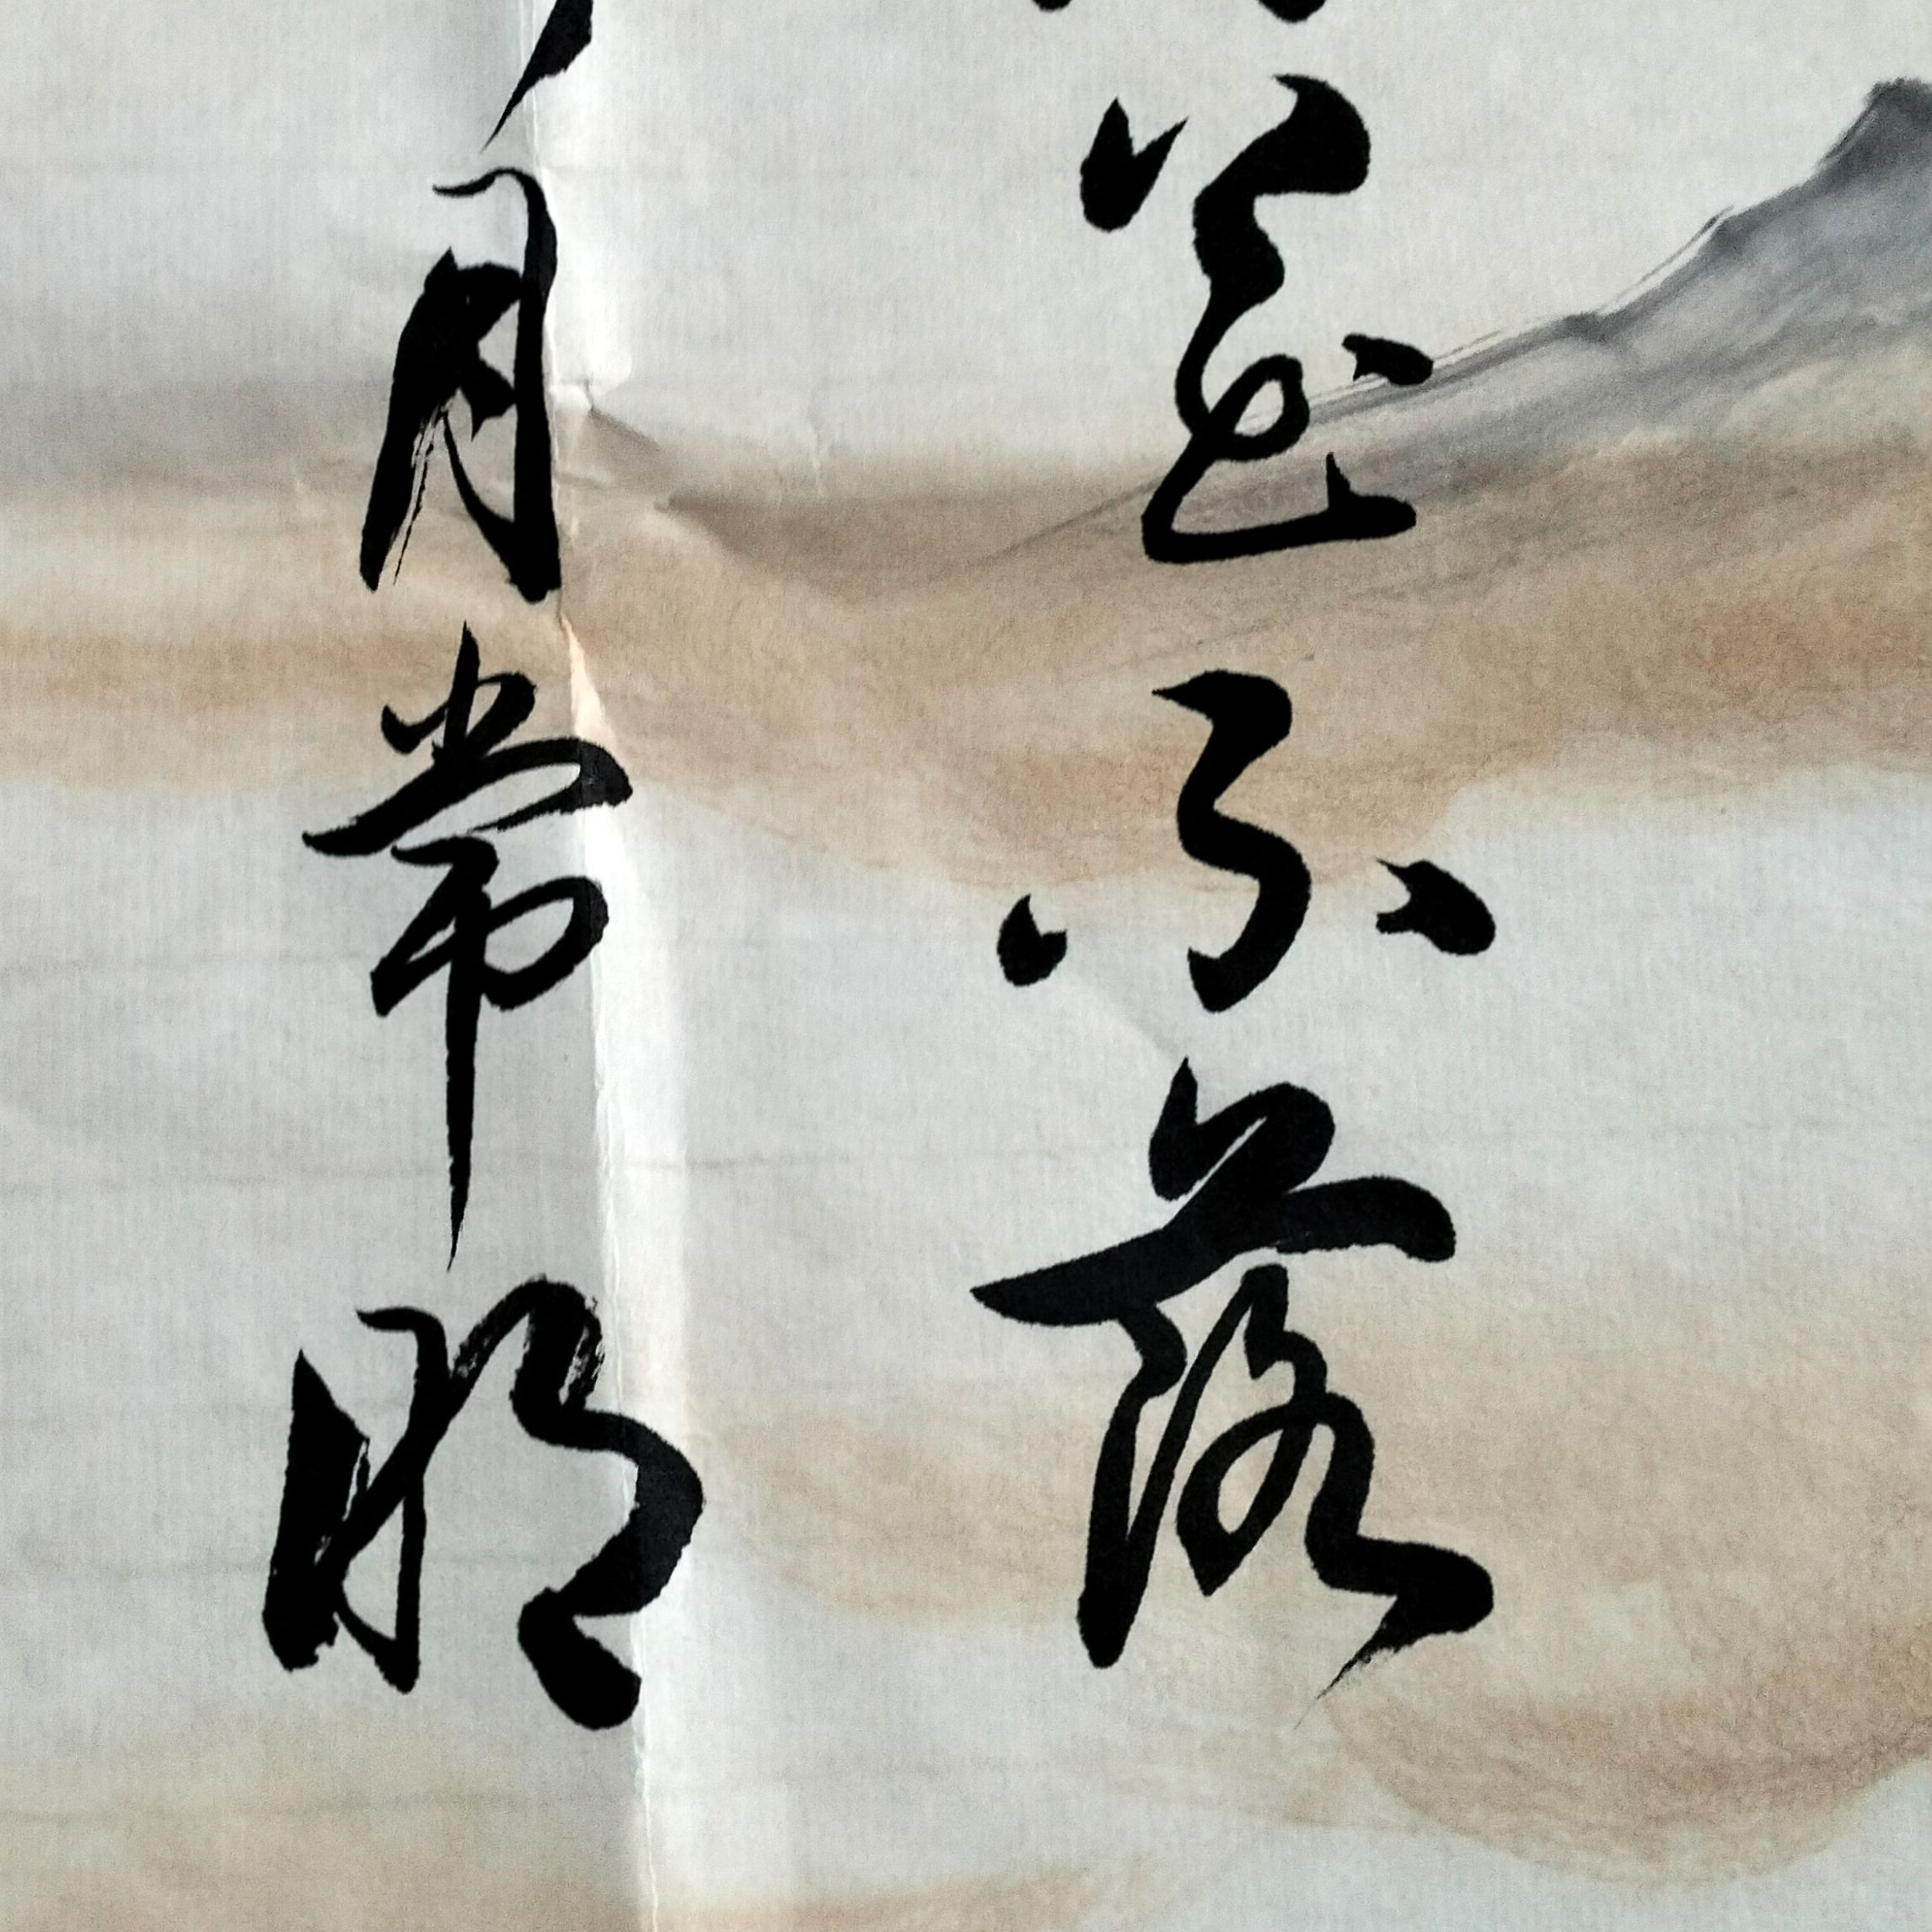 花不落
月常明